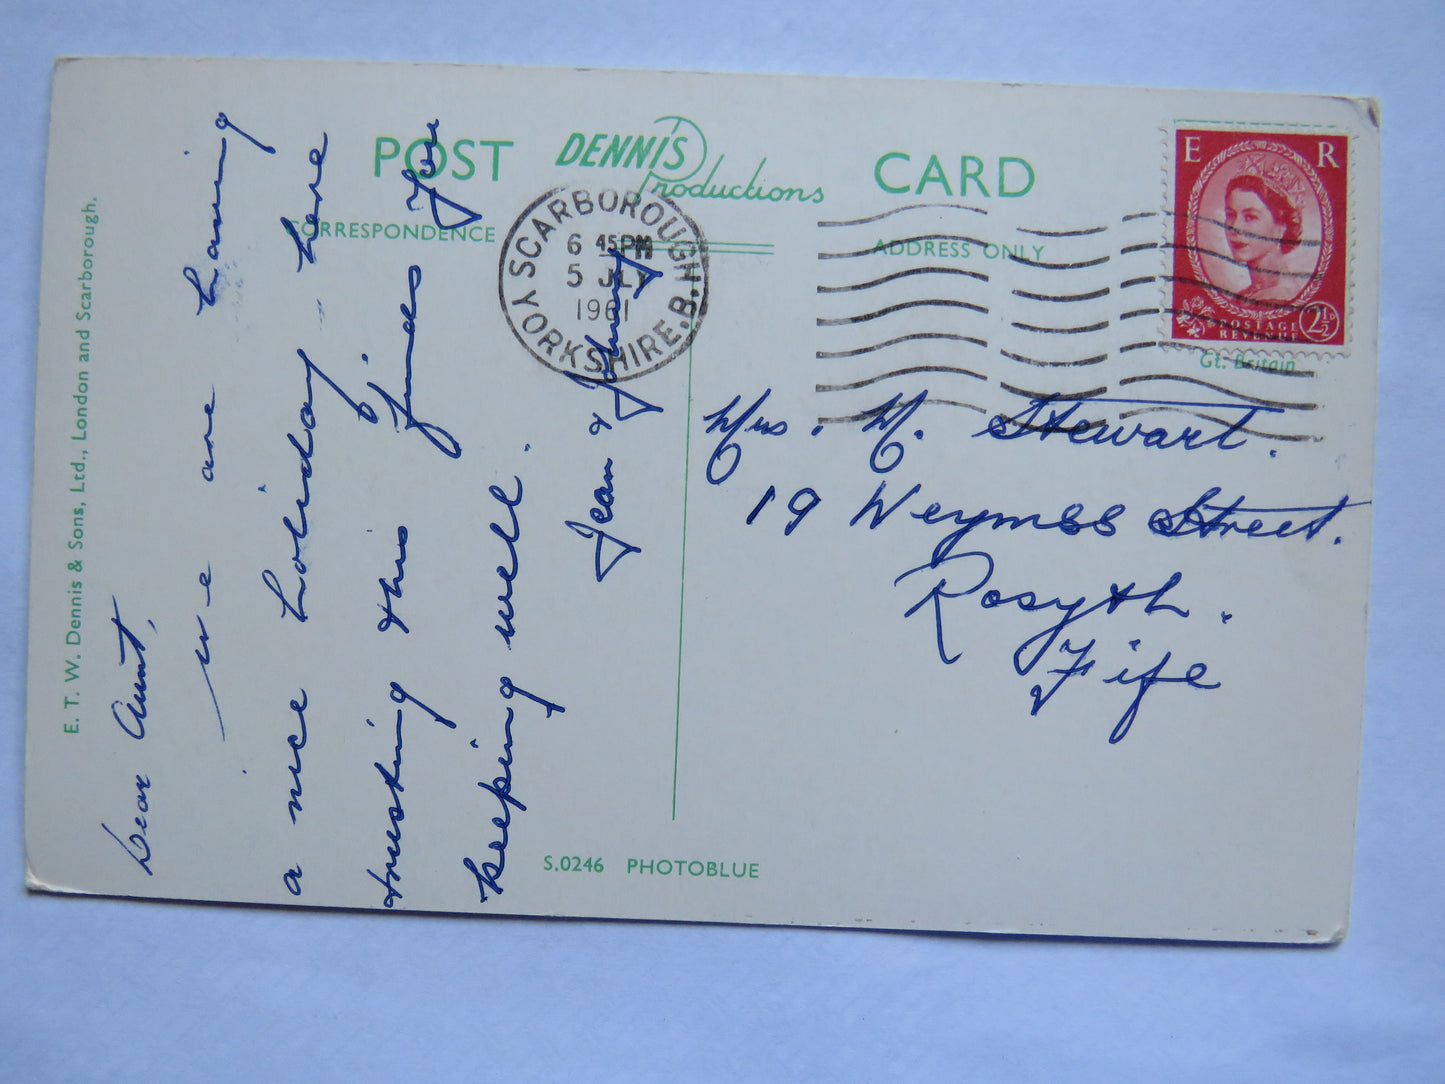 POST DENNIS Productions CARD
CORRESPONDENCE
ADDRESS ONLY
E. T. W. Dennis & Sons, Ltd., London and Scarborough.
SCARBOROUGH
6 45PM
5 JLY
1961
YORKSHIRE.B.
E R
POSTAGE
REVENUE
2½D
Gt. Britain
Dear Aunt,
we are having
a nice holiday here
trusting this finds you
keeping well.
Jean & Johnny
Mrs. M. Stewart.
19 Weymss Street.
Rosyth.
Fife
S.0246 PHOTOBLUE